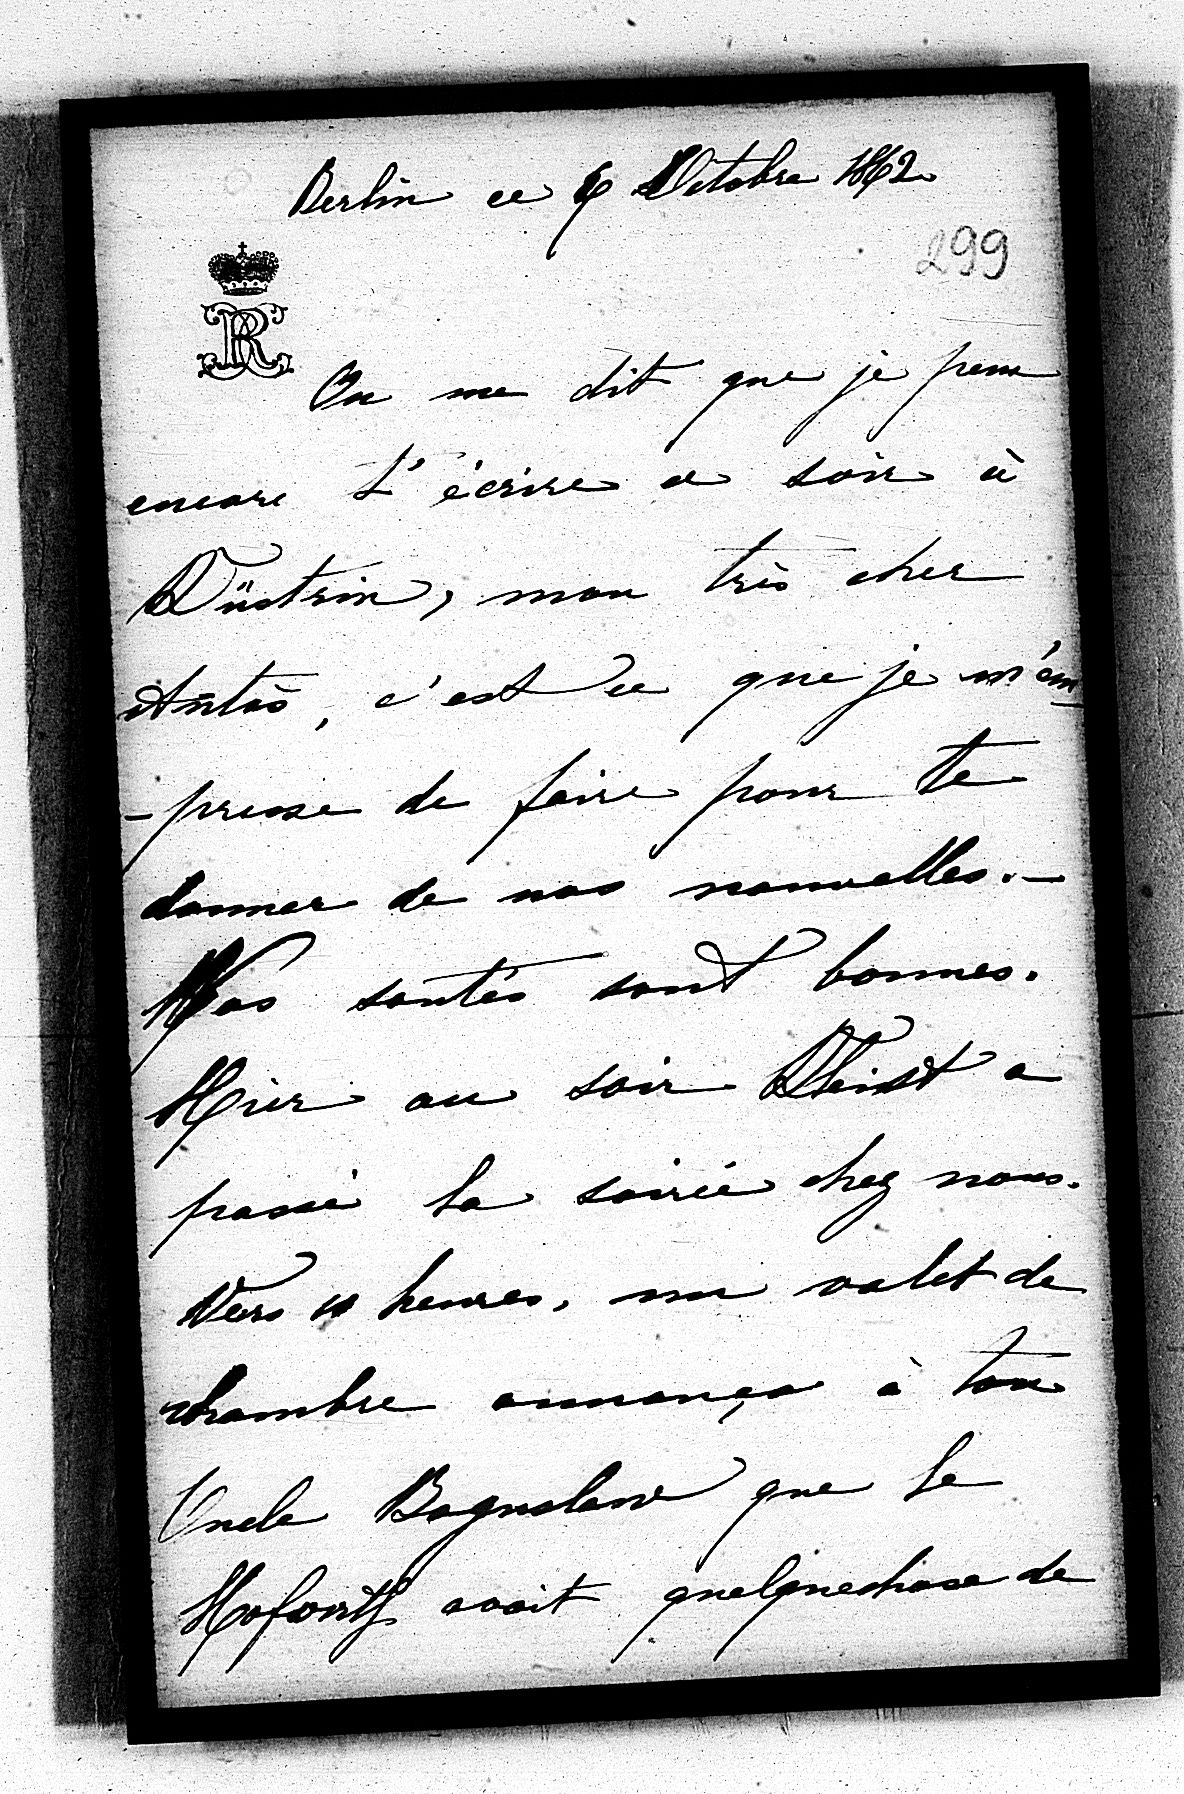 Berlin ce 6 Octobre 1862.
299
R
On me dit que je peux
encore t'écrire ce soir à
Cüstrin, mon très cher
Antos, c'est ce que je m'em-
-presse de faire pour te
donner de nos nouvelles.-
Nos santés sont bonnes.
Hier au soir Kleist a
passé la soirée chez nous.
Vers 10 heures, un valet de
chambre annonça à ton
Oncle Boguslaw que le
Hofwirth avait quelquechose de